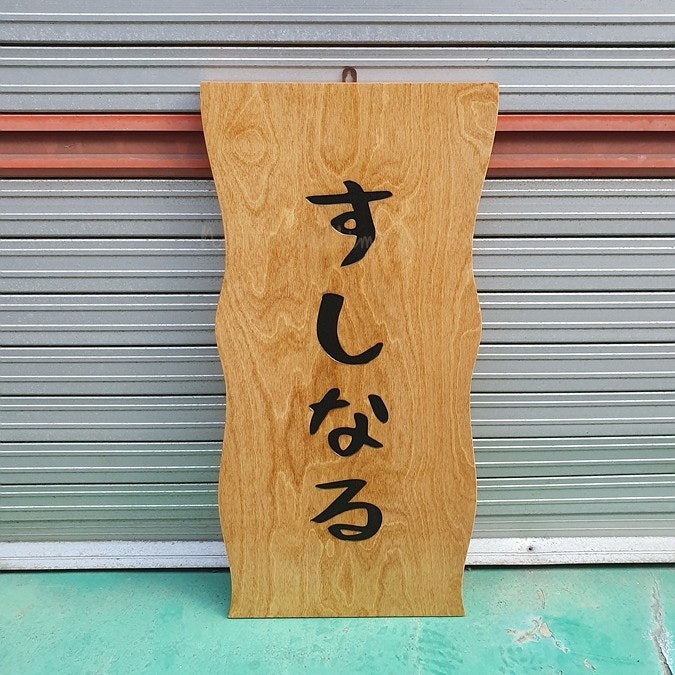 すしなる